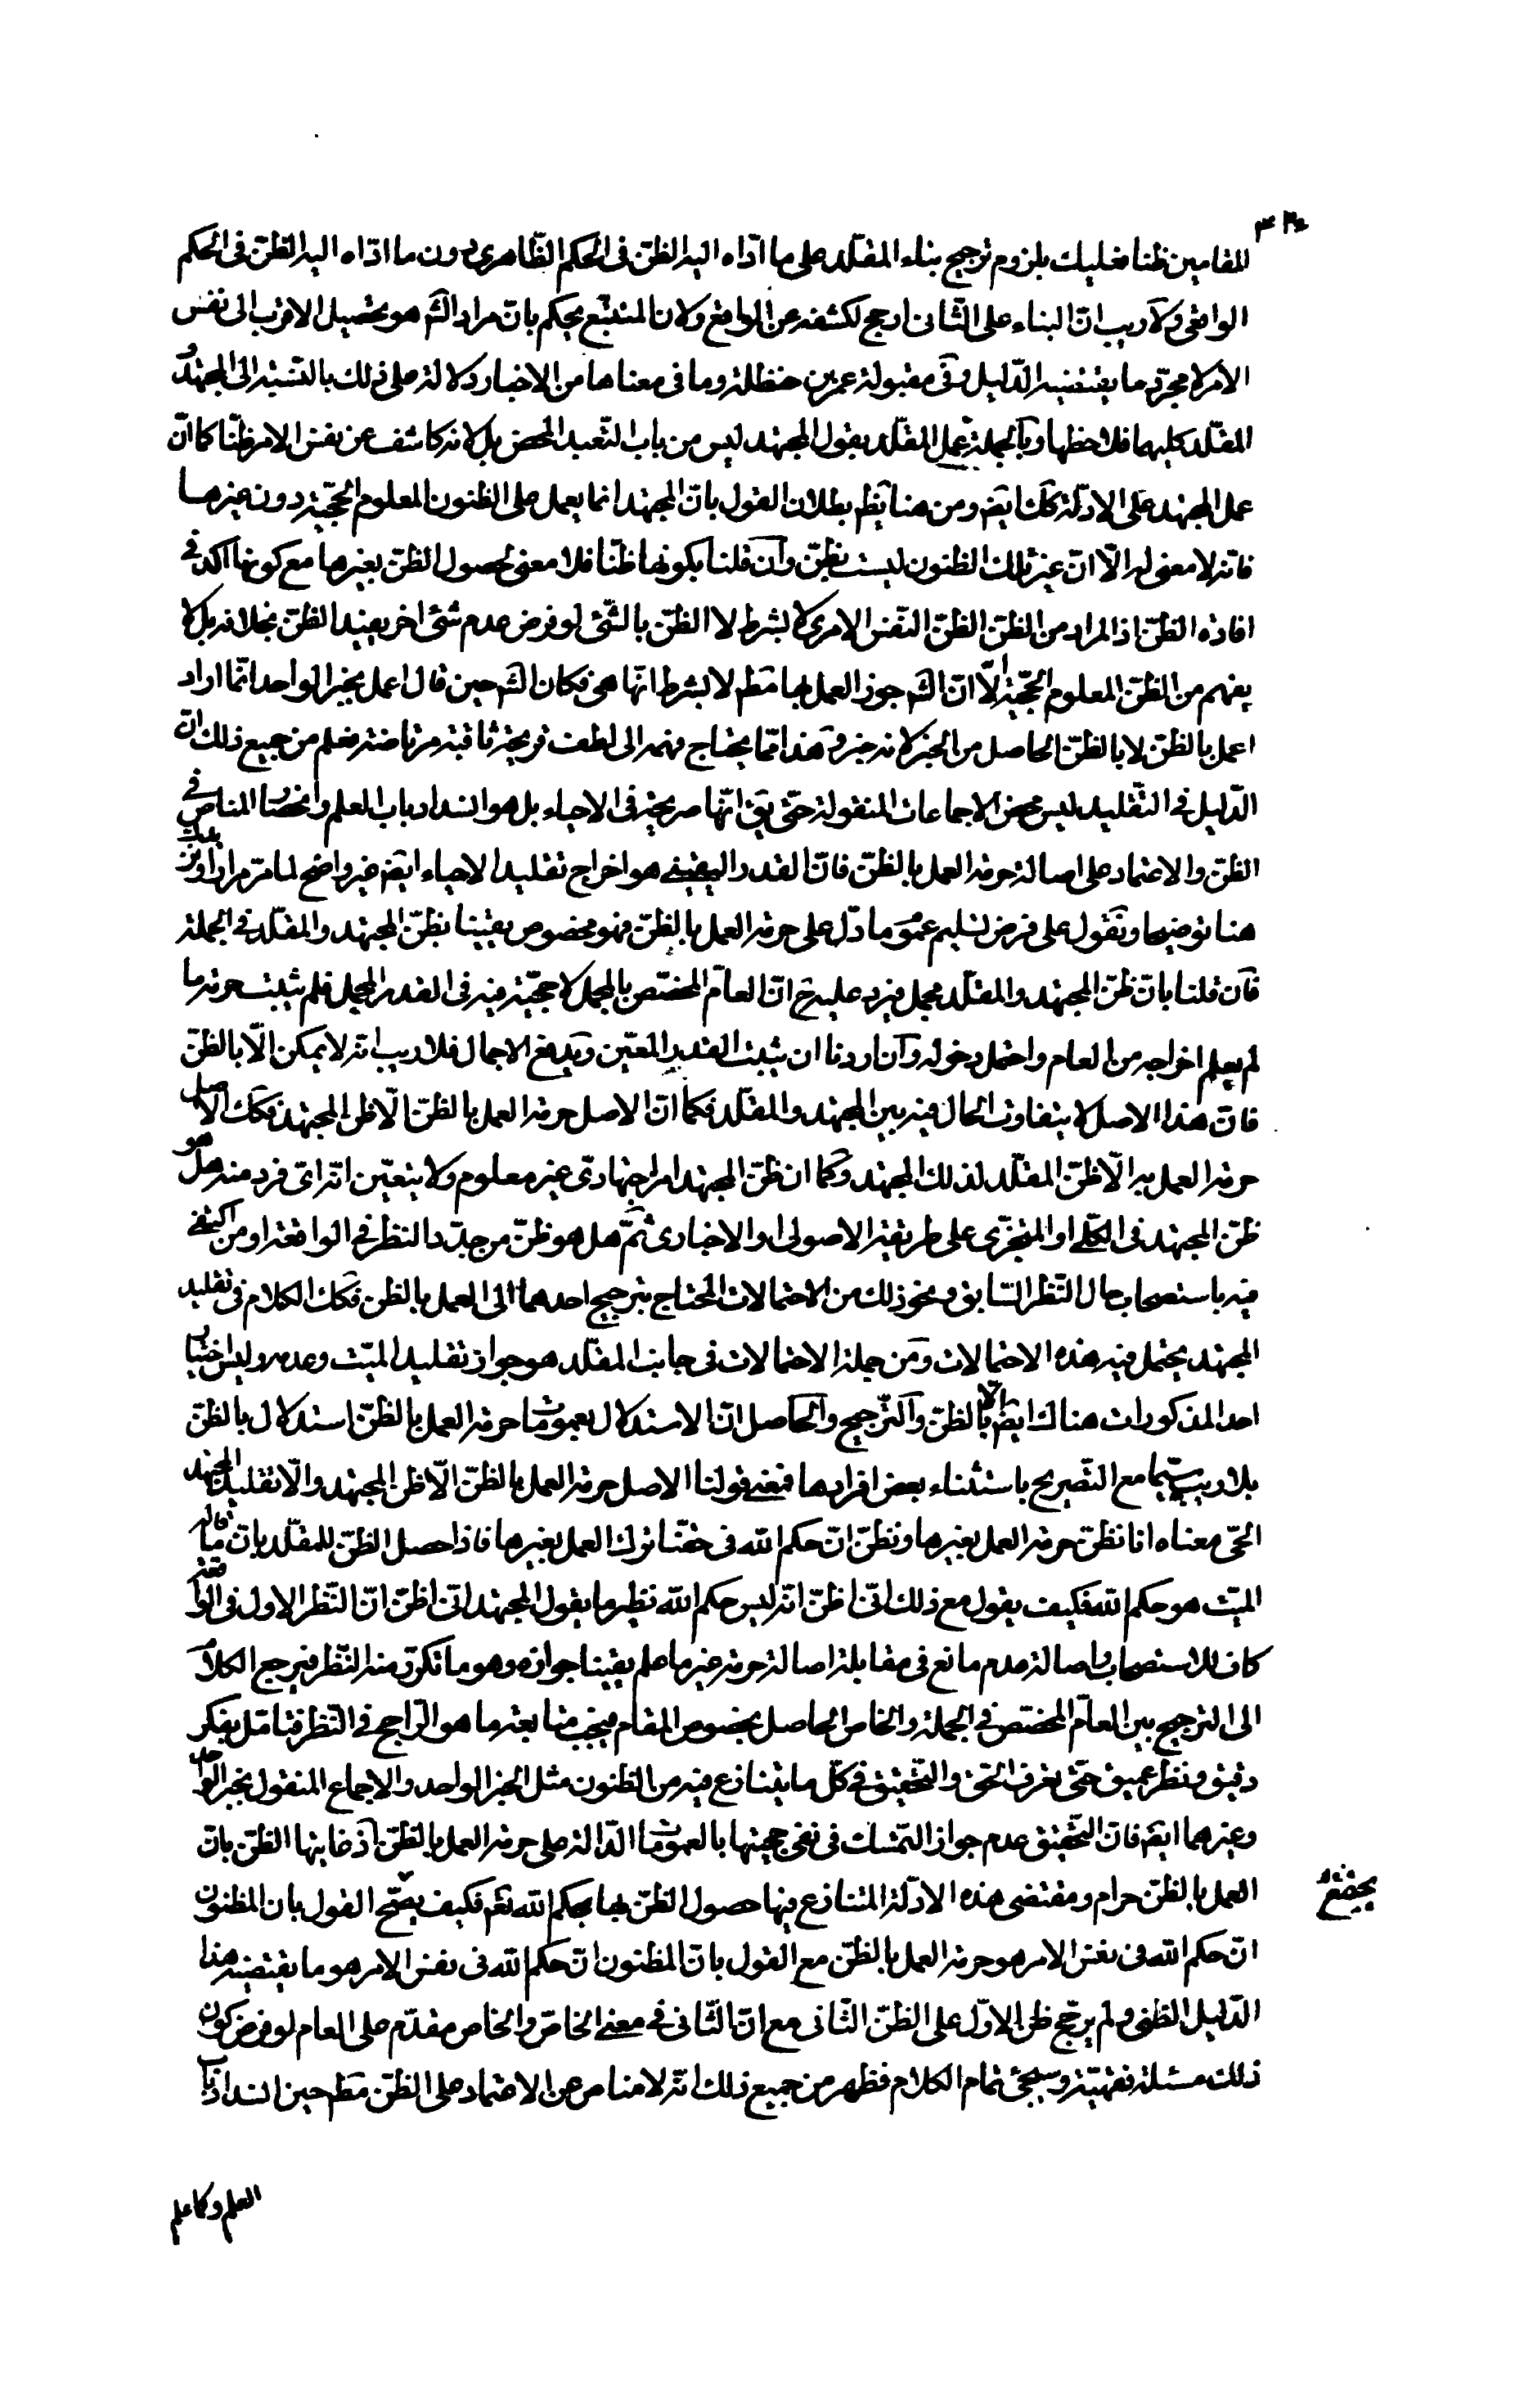 المقامين ظنا فعليك بلزوم ترجيح بناء المقلّد على ما ادّاه اليه الظنّ فى الحكم الظّاهرى دون ما ادّاه اليه الظنّ فى الحكم
الواقعى ولا ريب انّ البناء على الثّانى ارجح لكشفه عن الواقع ولانّ المتتبّع يحكم بانّ مراد الشّ هو تحصيل الاقرب الى نفس
الامر لا مجرّد ما يقتضيه الدّليل وفى مقبولة عمر بن حنظلة وما فى معناها من الاخبار دلالة على ذلك بالنّسبة الى المجتهد و
المقلّد كليهما فلاحظها وبالجملة عمل المقلّد بقول المجتهد ليس من باب التّعبد المحض بل لانه كاشف عن نفس الامر ظنّا كما انّ
عمل المجتهد على الادلّة كك ايضا ومن هنا يظهر بطلان القول بانّ المجتهد انما يعمل على الظنون المعلوم الحجّية دون غيرها
فانّه لا معنى له الّا انّ غير تلك الظنون ليست بظنّ وان قلنا بكونها ظنّا فلا معنى لحصول الظنّ بغيرها مع كونها اكد فى
افادة الظنّ اذ المراد من الظنّ الظنّ النفس الامرى لا بشرط لا الظنّ بالشّئ لو فرض عدم شئ اخر يفيد الظنّ بخلافه بل لا
يفهم من الظنّ المعلوم الحجّية الّا انّ الشّ جوز العمل بها مط لا بشرط انّها هى فكان الشّ حين قال اعمل بخبر الواحد انّما اراد
اعمل بالظنّ لا بالظنّ الحاصل من الخبر لانه خبر وهذا ممّا يحتاج فهمه الى لطف قريحة ثاقبة مرتاضة فعلم من جميع ذلك انّ
الدّليل فى التّقليد ليس محض الاجماعات المنقولة حتّى يق انّها صريحة فى الاحياء بل هو انسداد باب العلم وانحصار المناص فى
الظنّ والاعتماد على اصالة حرمة العمل بالظنّ فانّ القدر اليقينى هو اخراج تقليد الاحياء ايض غير واضح لما مرّ مرارا ونزيدك
هنا توضيحا ونقول على فرض تسليم عموم ما دلّ على حرمة العمل بالظنّ فهو مخصوص يقينا بظنّ المجتهد والمقلّد فى الجملة
فان قلنا بانّ ظنّ المجتهد والمقلّد مجمل فيرد عليه ح انّ العامّ المخصّص بالمجمل لا حجّية فيه فى القدر المجمل فلم يثبت حرمة ما
لم يعلم اخراجه من العام واحتمل دخوله وان اردنا ان نثبت القدر المعيّن ويدفع الاجمال فلا ريب انّه لا يمكن الّا بالظنّ
فانّ هذا الاصل لا يتفاوت الحال فيه بين المجتهد والمقلّد فكما انّ الاصل حرمة العمل بالظنّ الّا ظن المجتهد فكك الاصل
حرمة العمل به الّا ظنّ المقلّد لذلك المجتهد وكما ان ظنّ المجتهد امر اجتهادى غير معلوم ولا يتعيّن انّه اىّ فرد منه هل هو
ظنّ المجتهد فى الكلّ او المتجزّى على طريقة الاصولى او الاخبارى ثمّ هل هو ظنّ من جدّد النظر فى الواقعة او من اكتفى
فيه باستصحاب حال النّظر السّابق ونحو ذلك من الاحتمالات المحتاج ترجيح احدهما الى العمل بالظن فكك الكلام فى تقليد
المجتهد يحتمل فيه هذه الاحتمالات ومن جملة الاحتمالات فى جانب المقلّد هو جواز تقليد الميّت وعدمه وليس اختيار
احد المذكورات هناك ايض الّا بالظنّ والتّرجيح والحاصل انّ الاستدلال بعمومات حرمة العمل بالظنّ استدلال بالظنّ
بلا ريب سيّما مع التّصريح باستثناء بعض افرادها فمعنى قولنا الاصل حرمة العمل بالظنّ الّا ظن المجتهد والّا تقليد المجتهد
الحىّ معناه انا نظنّ حرمة العمل بغيرها ونظنّ انّ حكم الله فى حقّنا ترك العمل بغيرها فاذا حصل الظنّ للمقلّد بانّ ما قاله
الميّت هو حكم الله فكيف يقول مع ذلك انّى اظنّ انّه ليس حكم الله نظير ما يقول المجتهد انّى اظنّ انّ النّظر الاول فى الواقعة
كاف للاستصحاب واصالة عدم مانع فى مقابلة اصالة حرمة غير ما علم يقينا جوازه وهو ما تكرّر منه النّظر فيرجع الكلام
الى الترجيح بين العامّ المخصّص فى الجملة والخاص الحاصل بخصوص المقام فيجب متابعة ما هو الرّاجح فى النّظر فتامّل بفكر
دقيق ونظر عميق حتّى تعرف الحقّ والتّحقيق فى كلّ ما يتنازع فيه من الظنون مثل الخبر الواحد والاجماع المنقول بخبر الواحد
وغيرهما ايض فانّ التّحقيق عدم جواز التمسّك فى نفى حجيتها بالعمومات الدّالة على حرمة العمل بالظنّ اذ غايتها الظنّ بانّ
العمل بالظنّ حرام ومقتضى هذه الادلّة المتنازع فيها حصول الظنّ بها بحكم الله تع فكيف يصحّ القول بان المظنون
انّ حكم الله فى نفس الامر هو حرمة العمل بالظنّ مع القول بانّ المظنون انّ حكم الله فى نفس الامر هو ما يقتضيه هذا
الدّليل الظنّى ولم يرجّح ظن الاوّل على الظنّ الثّانى مع انّ الثّانى فى معنى الخاصّ والخاص مقدّم على العام لو فرض كون
ذلك مسئلة فقهيّة وسيجئ تمام الكلام فظهر من جميع ذلك انّه لا مناص عن الاعتماد على الظنّ مط حين انسداد باب
العلم وكما علم